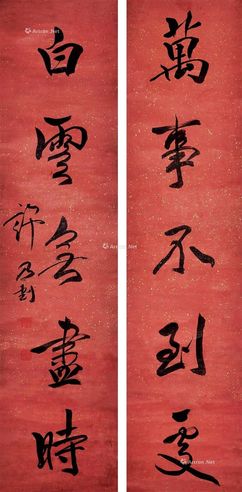 萬事不到處
白雲無盡時
許乃釗
Artron.Net
Artron.Net
Artron.Net
Artron.Net
Artron.Net